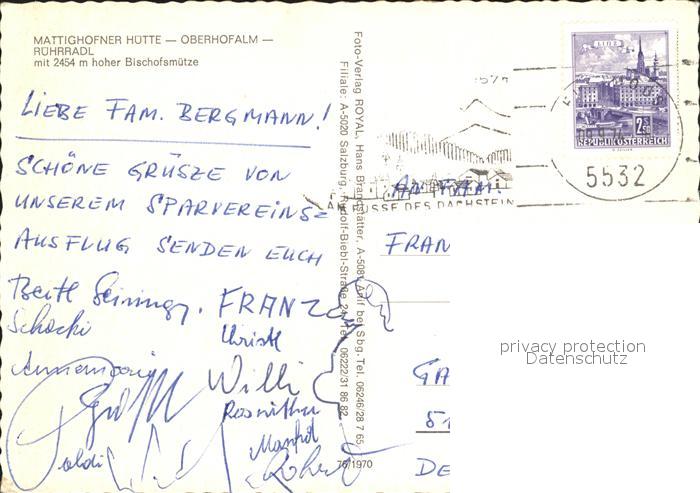 MATTIGHOFNER HÜTTE — OBERHOFALM —
RÜHRRADL
mit 2454 m hoher Bischofsmütze
LIEBE FAM. BERGMANN!
SCHÖNE GRÜSZE VON
UNSEREM SPARVEREINS=
AUSFLUG SENDEN EUCH
FRANZ
Schocki
Christl
Willi
Roswitha
Manfred
Poldi
Robert
Foto-Verlag ROYAL, Hans Brandstätter, A-5081 Anif bei Sbg. Tel. 06246/28 7 65
Filiale: A-5020 Salzburg, Rudolf-Biebl-Straße 24, Tel. 06222/31 86 82
76/1970
AM FUSSE DES DACHSTEIN
LINZ
2.50
REPUBLIK ÖSTERREICH
5532
AN FAM.
FRAN
GA
51
DE
privacy protection
Datenschutz